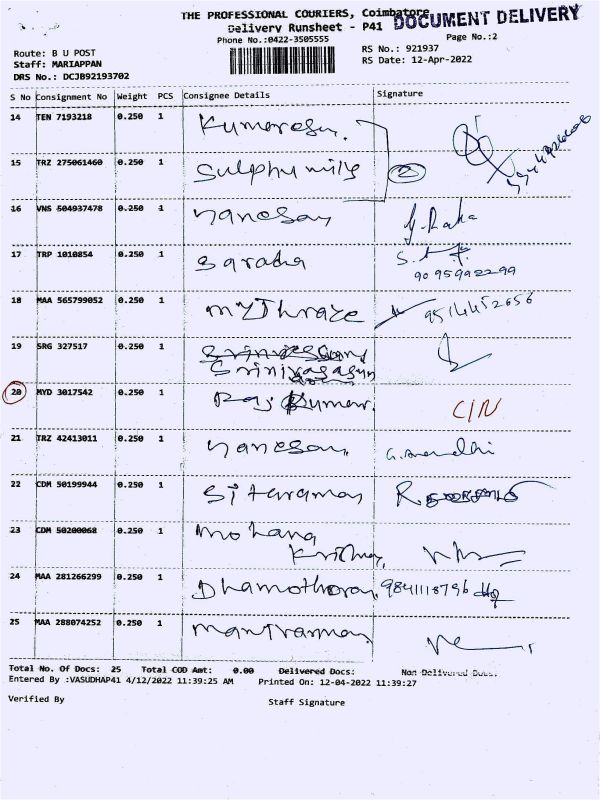 THE PROFESSIONAL COURIERS, Coimbatore
DOCUMENT DELIVERY
Delivery Runsheet - P41
Phone No.:0422-3505555
Page No.:2
Route: B U POST
RS No.: 921937
Staff: MARIAPPAN
RS Date: 12-Apr-2022
DRS No.: DCJB92193702
S No Consignment No Weight PCS Consignee Details Signature
14 TEN 7193218 0.250 1
15 TRZ 275061460 0.250 1 Sulphu mills 2
16 VNS 504937478 0.250 1
17 TRP 1010854 0.250 1 Sarada
9095992299
18 MAA 565799052 0.250 1
9514452656
19 SRG 327517 0.250 1
Srinivasagan
20 MYD 3017542 0.250 1 Raj Kumar. C/N
21 TRZ 42413011 0.250 1
22 CDM 50199944 0.250 1 Sitaraman
23 CDM 50200068 0.250 1 Mohana
Krishna
24 MAA 281266299 0.250 1 Dhamotharan 9841118796
25 MAA 288074252 0.250 1
Total No. Of Docs: 25 Total COD Amt: 0.00 Delivered Docs: Non Delivered Docs:
Entered By :VASUDHAP41 4/12/2022 11:39:25 AM Printed On: 12-04-2022 11:39:27
Verified By Staff Signature